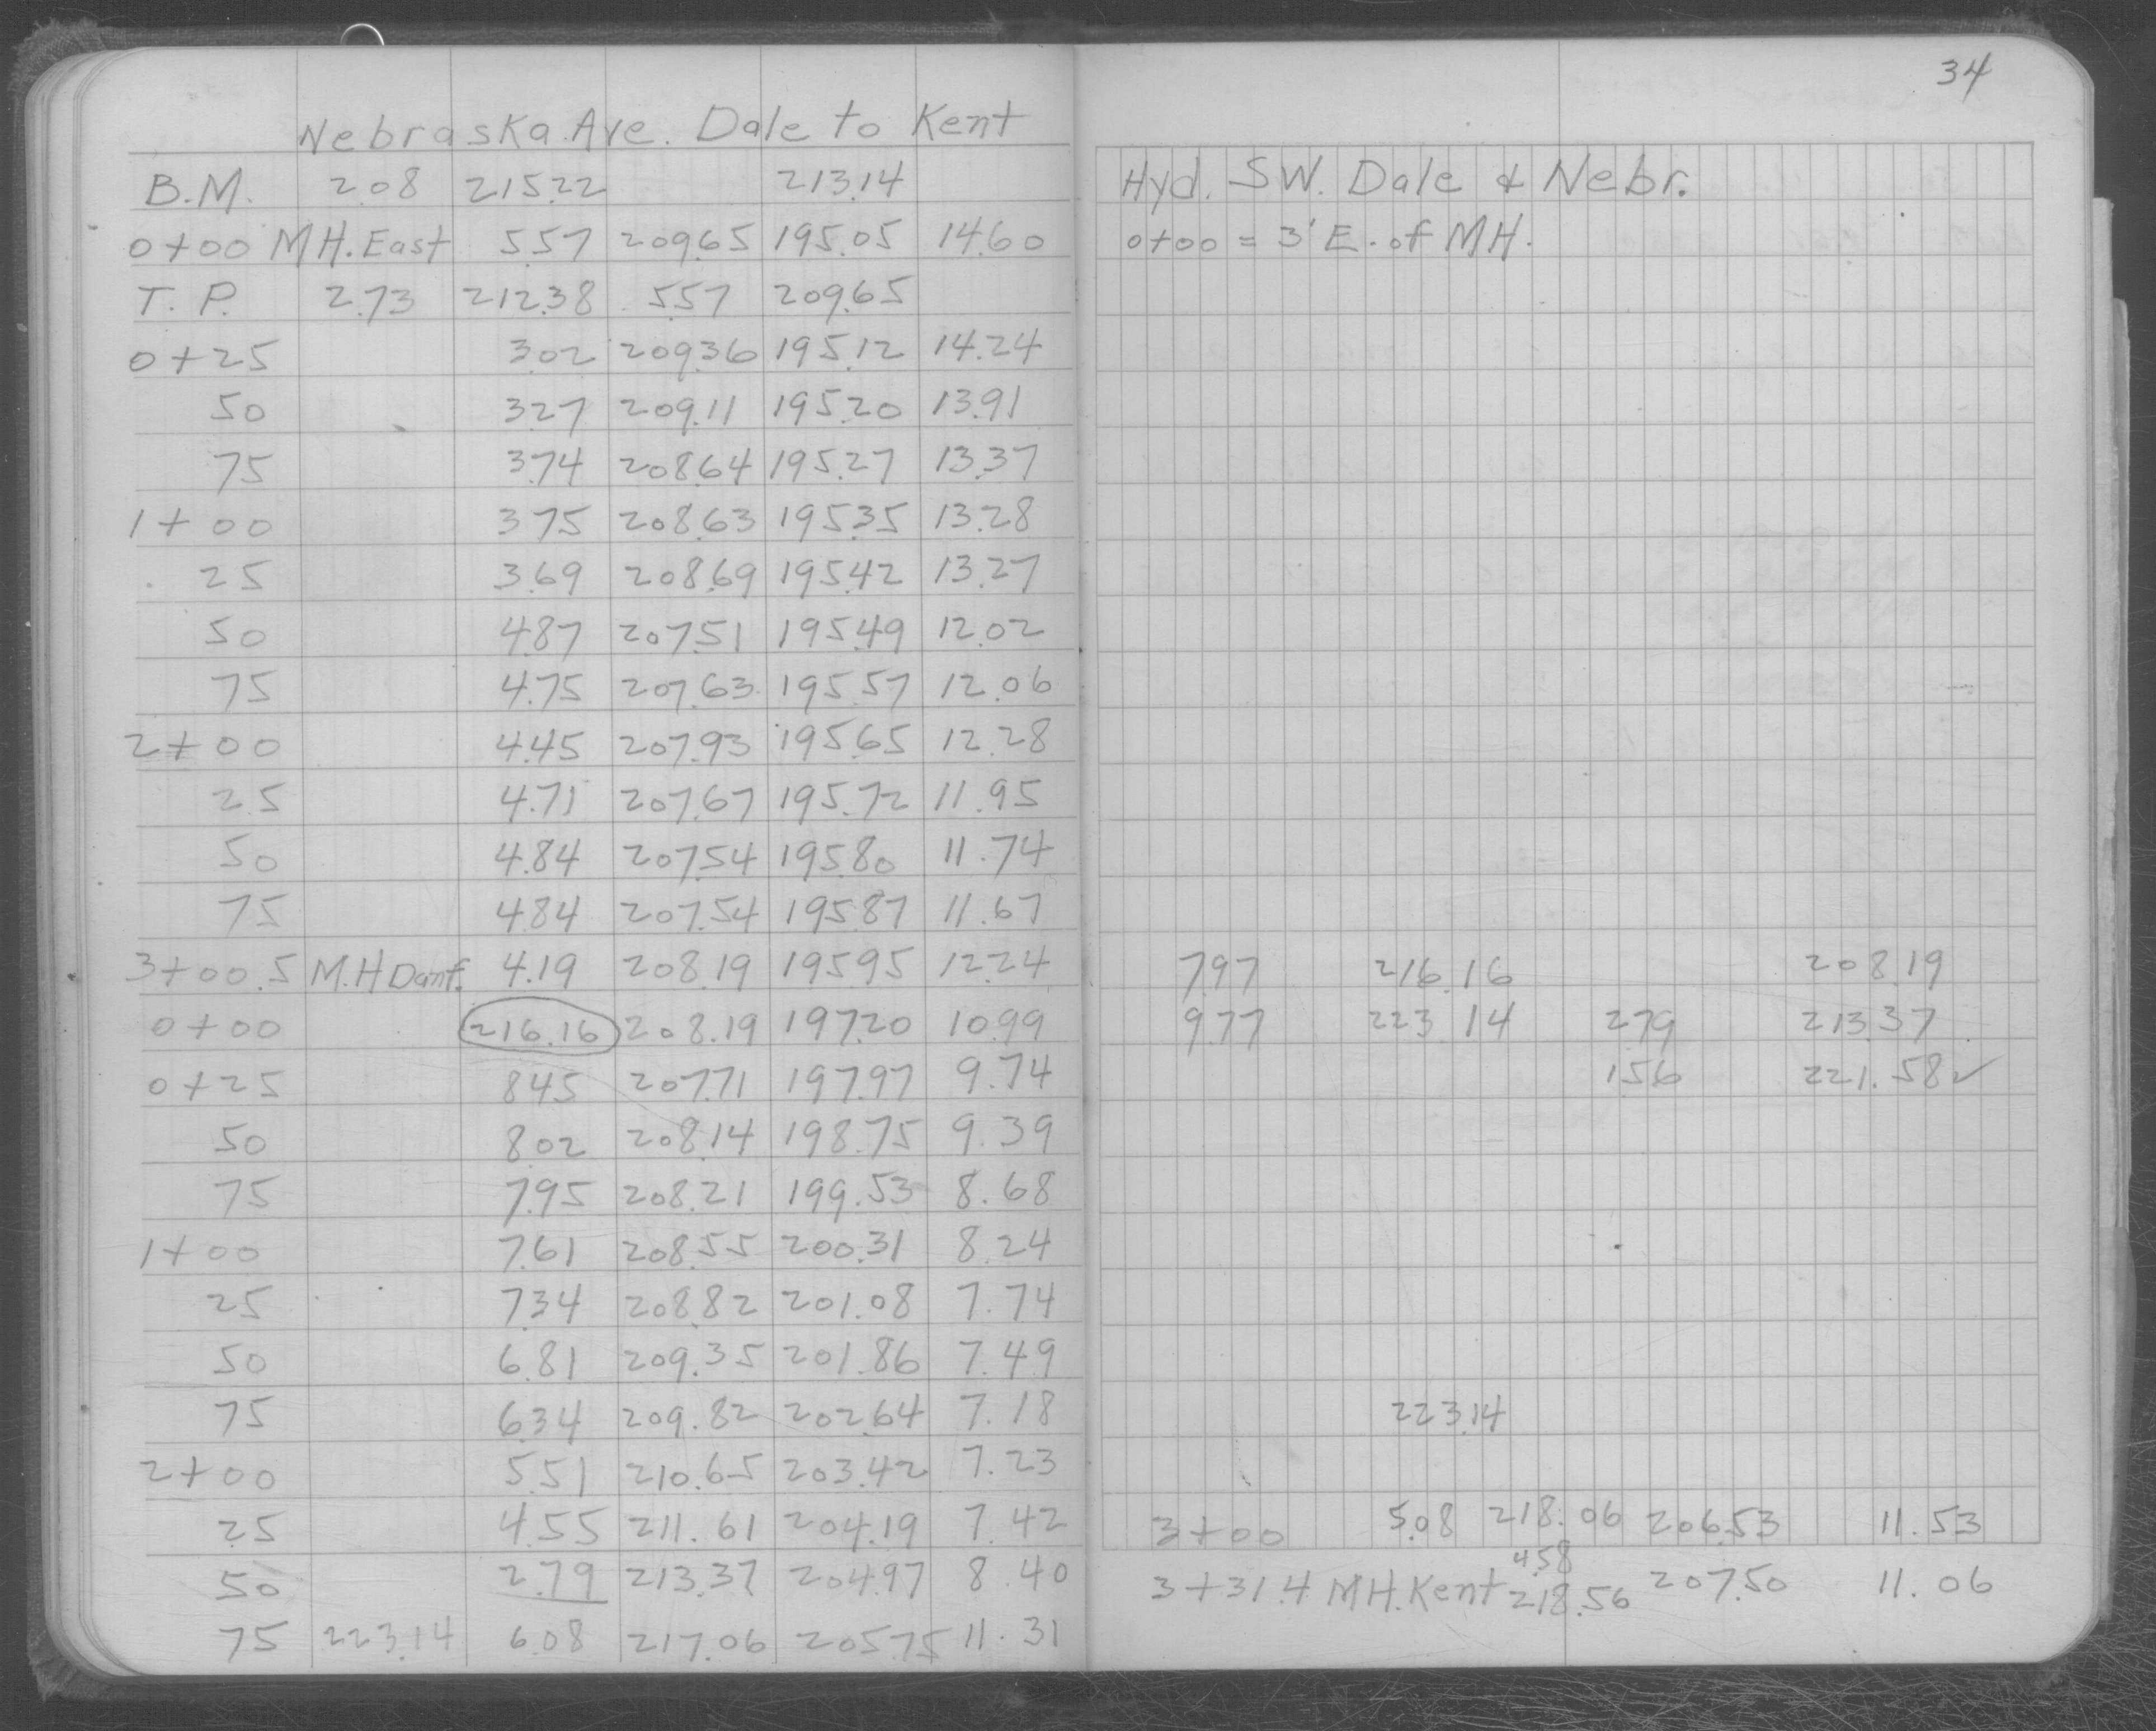 34
Nebraska Ave. Dale to Kent
B.M. 2.08 215.22 213.14
0+00 MH. East 5.57 209.65 195.05 14.60
T.P. 2.73 212.38 5.57 209.65
0+25 3.02 209.36 195.12 14.24
50 3.27 209.11 195.20 13.91
75 3.74 208.64 195.27 13.37
1+00 3.75 208.63 195.35 13.28
25 3.69 208.69 195.42 13.27
50 4.87 207.51 195.49 12.02
75 4.75 207.63 195.57 12.06
2+00 4.45 207.93 195.65 12.28
25 4.71 207.67 195.72 11.95
50 4.84 207.54 195.80 11.74
75 4.84 207.54 195.87 11.67
3+00.5 M.H Danf. 4.19 208.19 195.95 12.24
0+00 216.16 208.19 197.20 10.99
0+25 8.45 207.71 197.97 9.74
50 8.02 208.14 198.75 9.39
75 7.95 208.21 199.53 8.68
1+00 7.61 208.55 200.31 8.24
25 7.34 208.82 201.08 7.74
50 6.81 209.35 201.86 7.49
75 6.34 209.82 202.64 7.18
2+00 5.51 210.65 203.42 7.23
25 4.55 211.61 204.19 7.42
50 2.79 213.37 204.97 8.40
75 223.14 6.08 217.06 205.75 11.31
Hyd. SW. Dale & Nebr.
0+00 = 3' E. of MH.
7.97 216.16 208.19
9.77 223.14 2.79 213.37
1.56 221.58 ✓
223.14
3+00 5.08 218.06 206.53 11.53
4.58
3+31.4 MH. Kent 218.56 207.50 11.06